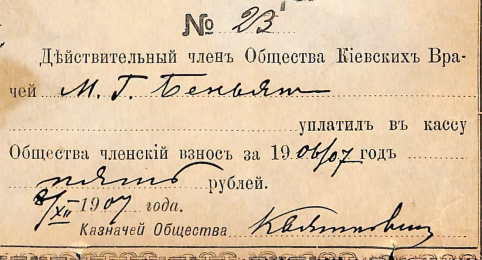 № 23
Дѣйствительный членъ Общества Кіевскихъ Вра-
чей М. Г. Беньяш
уплатилъ въ кассу
Общества членскій взносъ за 1906/07 годъ
пять рублей.
8/XII 1907 года.
Казначей Общества